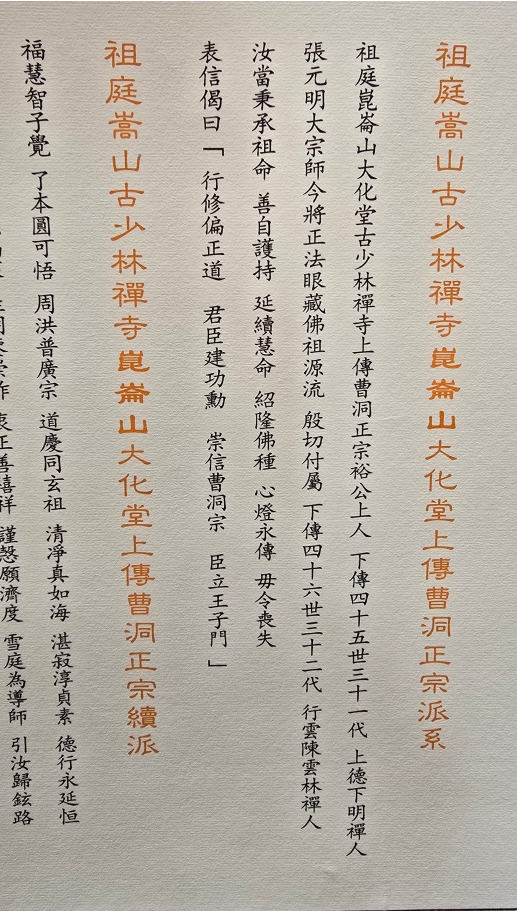 祖庭嵩山古少林禪寺崑崙山大化堂上傳曹洞正宗派系
祖庭崑崙山大化堂古少林禪寺上傳曹洞正宗裕公上人 下傳四十五世三十一代 上德下明禪人
張元明大宗師今將正法眼藏佛祖源流 殷切付屬 下傳四十六世三十二代 行雲陳雲林禪人
汝當秉承祖命 善自護持 延續慧命 紹隆佛種 心燈永傳 毋令喪失
表信偈曰「行修偏正道 君臣建功勳 崇信曹洞宗 臣立王子門」
祖庭嵩山古少林禪寺崑崙山大化堂上傳曹洞正宗續派
福慧智子覺 了本圓可悟 周洪普廣宗 道慶同玄祖 清凈真如海 湛寂淳貞素 德行永延恒
衷正善禧祥 謹愨願濟度 雪庭為導師 引汝歸鉉路